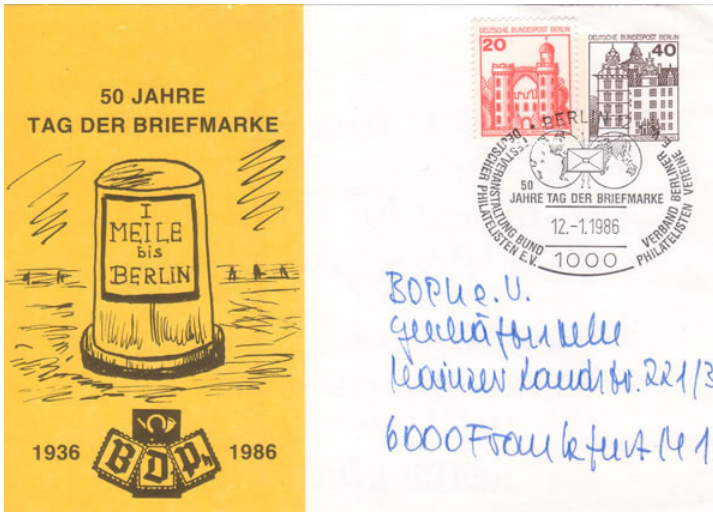 50 JAHRE
TAG DER BRIEFMARKE
I
MEILE
bis
BERLIN
1936
BDPh
1986
DEUTSCHE BUNDESPOST BERLIN
20
DEUTSCHE BUNDESPOST BERLIN
40
BERLIN 12
FESTVERANSTALTUNG BUND
DEUTSCHER PHILATELISTEN E.V.
VERBAND BERLINER
PHILATELISTEN VEREINE E.V.
50
JAHRE TAG DER BRIEFMARKE
12.-1.1986
1000
BDPh e.V.
Geschäftsstelle
Mainzer Landstr. 221/3
6000 Frankfurt/M 1